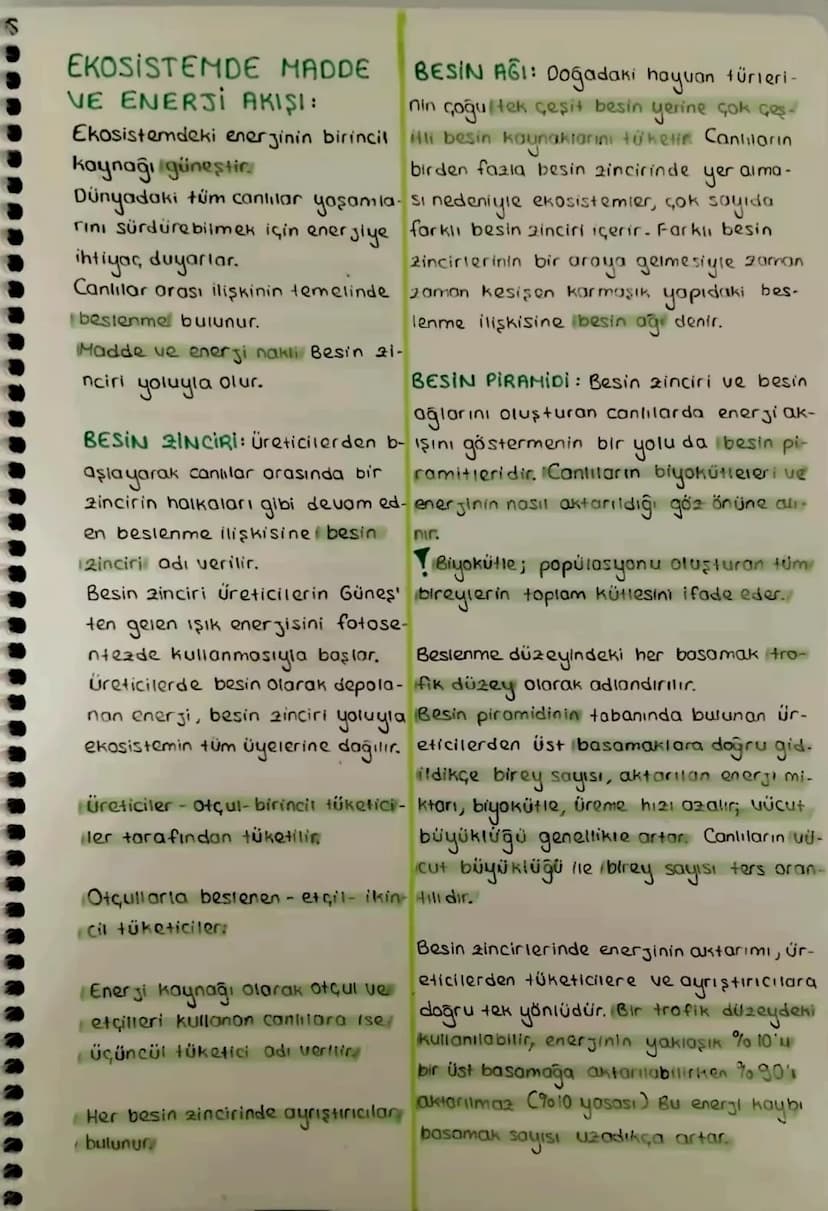 EKOSİSTEMDE MADDE
VE ENERJİ AKIŞI:
Ekosistemdeki enerjinin birincil
kaynağı güneştir.
Dünyadaki tüm canlılar yaşamla-
rını sürdürebilmek için enerjiye
ihtiyaç duyarlar.
Canlılar arası ilişkinin temelinde
beslenme bulunur.
Madde ve enerji nakli Besin zi-
nciri yoluyla olur.
BESİN ZİNCİRİ: Üreticilerden b-
aşlayarak canlılar arasında bir
zincirin halkaları gibi devam ed-
en beslenme ilişkisine besin
zinciri adı verilir.
Besin zinciri üreticilerin Güneş'
ten gelen ışık enerjisini fotose-
ntezde kullanmasıyla başlar.
Üreticilerde besin olarak depola-
nan enerji, besin zinciri yoluyla
ekosistemin tüm üyelerine dağılır.
Üreticiler - otçul - birincil tüketici-
ler tarafından tüketilir.
Otçullarla beslenen - etçil - ikin-
cil tüketiciler.
Enerji kaynağı olarak otçul ve
etçilleri kullanan canlılara ise
üçüncül tüketici adı verilir.
Her besin zincirinde ayrıştırıcılar
bulunur.
BESİN AĞI: Doğadaki hayvan türleri-
nin çoğu tek çeşit besin yerine çok çeş-
itli besin kaynaklarını tüketir. Canlıların
birden fazla besin zincirinde yer alma-
sı nedeniyle ekosistemler, çok sayıda
farklı besin zinciri içerir. Farklı besin
zincirlerinin bir araya gelmesiyle zaman
zaman kesişen karmaşık yapıdaki bes-
lenme ilişkisine besin ağı denir.
BESİN PİRAMİDİ: Besin zinciri ve besin
ağlarını oluşturan canlılarda enerji ak-
ışını göstermenin bir yolu da besin pi-
ramitleridir. Canlıların biyokütleleri ve
enerjinin nasıl aktarıldığı göz önüne alı-
nır.
! Biyokütle; popülasyonu oluşturan tüm
bireylerin toplam kütlesini ifade eder.
Beslenme düzeyindeki her basamak tro-
fik düzey olarak adlandırılır.
Besin piramidinin tabanında bulunan ür-
eticilerden üst basamaklara doğru gid-
ildikçe birey sayısı, aktarılan enerji mi-
ktarı, biyokütle, üreme hızı azalır; vücut
büyüklüğü genellikle artar. Canlıların vü-
cut büyüklüğü ile birey sayısı ters oran-
tılıdır.
Besin zincirlerinde enerjinin aktarımı, ür-
eticilerden tüketicilere ve ayrıştırıcılara
doğru tek yönlüdür. Bir trofik düzeydeki
kullanılabilir, enerjinin yaklaşık %10'u
bir üst basamağa aktarılabilirken %90'ı
aktarılmaz (%10 yasası) Bu enerji kaybı
basamak sayısı uzadıkça artar.